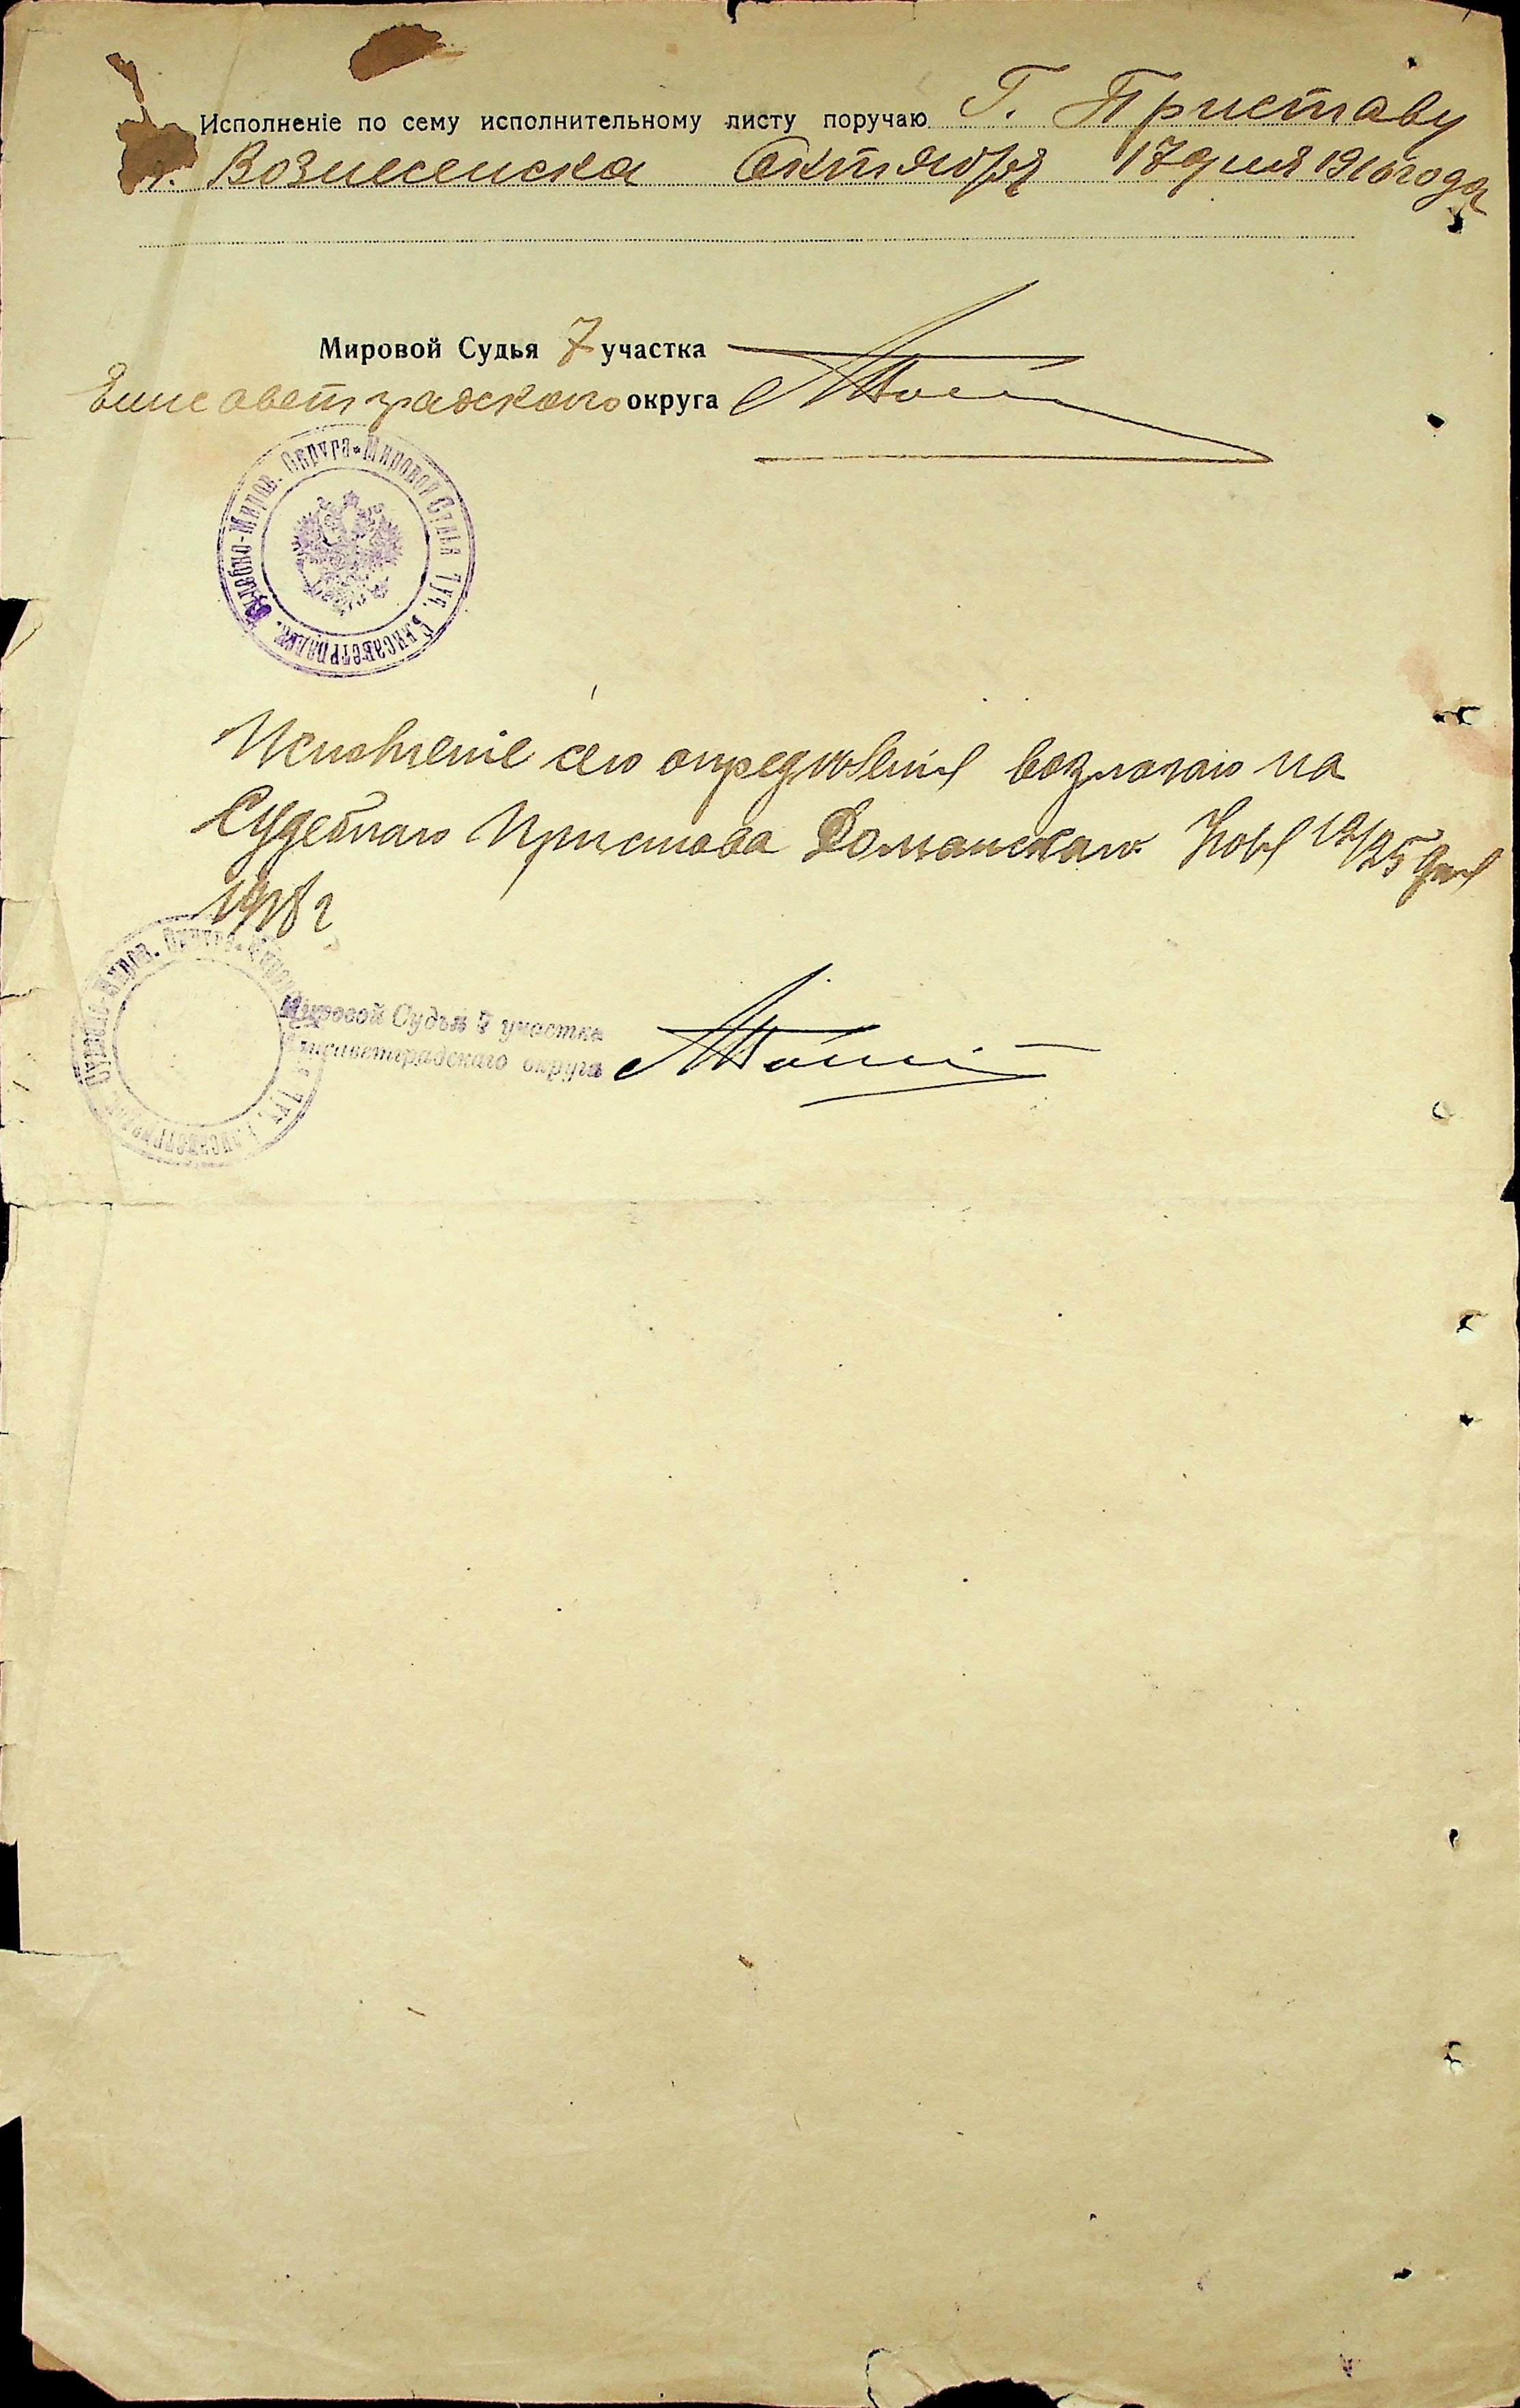 Исполненіе по сему исполнительному листу поручаю Г. Приставу
г. Вознесенска Октября 17 дня 1916 года
Мировой Судья 7 участка
Елисаветградского округа
Округа * Мировой Судья 7 уч. Елисаветградск. Судебно-Миров.
Исполненіе сего опредѣленія возлагаю на
Судебнаго Пристава Доманскаго. 12/25 дня
1918 г
Мировой Судья 7 участка
Елисаветградскаго округа